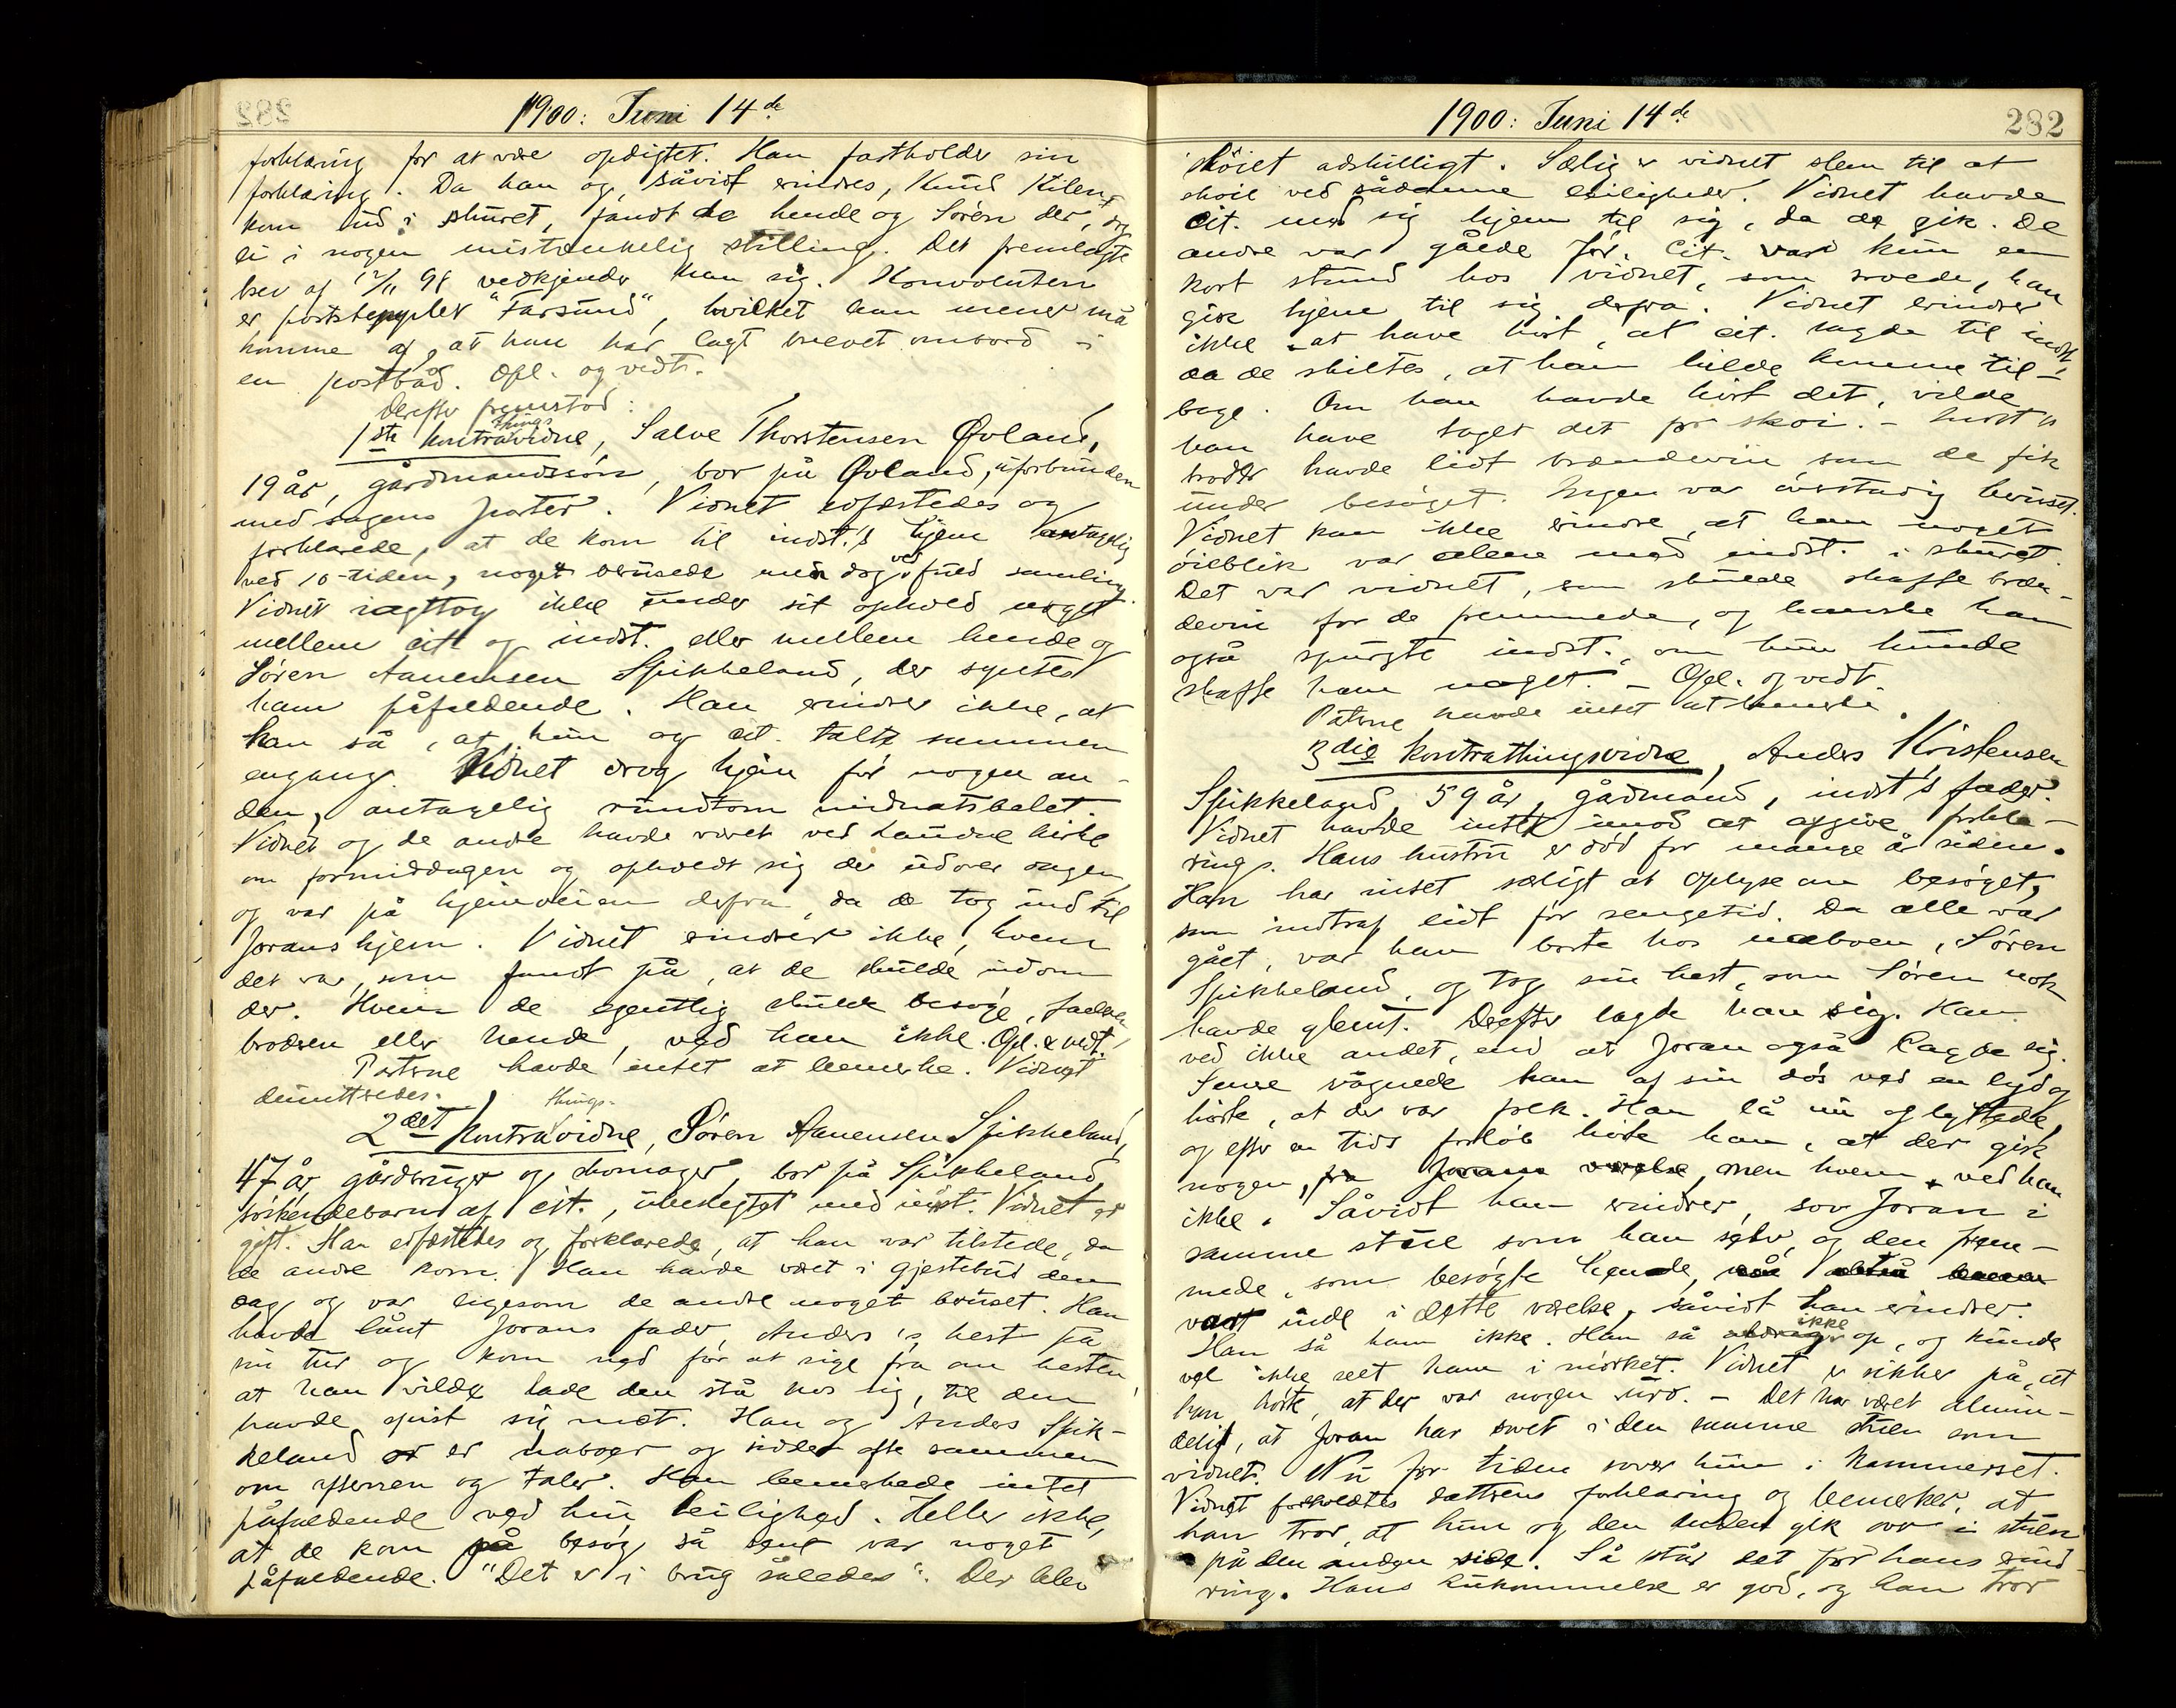 1900: Juni 14de
forklaring for at være opdigtet. Han fastholder sin
forklaring. Da han og, såvidt erindres, Knud Kilen
kom ind i skuret, fandt de hende og Søren der, dog
ei i nogen mistænkelig stilling. Det fremlagte
brev af 12/11 98 vedkjender han sig. Konvolutten
er poststemplet "Farsund", hvilket han mener må
komme af, at han har lagt brevet ombord i
en postbåd. Opl. og vedt.
Derefter fremstod:
1ste kontrathingsvidne, Salve Thorstensen Øvland,
19 år, gårdmandssøn, bor på Øvland, uforbunden
med sagens parter. Vidnet edfæstedes og
forklarede, at de kom til indst.'s hjem antagelig
ved 10-tiden, noget berusede men dog ved fuld samling.
Vidnet iagttog ikke under sit ophold noget
mellem cit. og indst. eller mellem hende og
Søren Aanensen Spikkeland, der syntes
ham påfaldende. Han erindrer ikke, at
han så, at hun og cit. talte sammen
engang. Vidnet drog hjem før nogen an-
den, antagelig rundtom midnatsbelet.
Vidnet og de andre havde været ved Laudal kirke
om formiddagen og opholdt sig der udover dagen
og var på hjemveien derfra, da de tog ind til
Jorans hjem. Vidnet erindrer ikke, hvem
det var, som fandt på, at de skulde indom
der. Hvem de egentlig skulde besøge, faderen,
broderen eller hende, ved han ikke. Opl. & vedt.
Parterne havde intet at bemerke. Vidnet
demitteredes.
2det kontrathingsvidne, Søren Aanensen Spikkeland,
47 år, gårdbruger og skomager, bor på Spikkeland,
søskendebarn af cit., ubeslegtet med indst. Vidnet er
gift. Han edfæstedes og forklarede, at han var tilstede, da
de andre kom. Han havde været i gjestebud den
dag og var ligesom de andre noget beruset. Han
havde lånt Jorans fader, Anders's hest på
sin tur og kom ned for at sige fra om hesten,
at han vilde lade den stå hos sig, til den
havde spist sig mæt. Han og Anders Spik-
keland er naboer og sidder ofte sammen
om aftenen og taler. Han bemerkede intet
påfaldende ved hin leilighed. Heller ikke,
at de kom på besøg så sent var noget
påfaldende. "Det er i brug således". Der blev
1900: Juni 14de
282
skøiet adskilligt. Særlig er vidnet slem til at
skøie ved sådanne leiligheder. Vidnet havde
cit. med sig hjem til sig, da de gik. De
andre var gåede før. Cit. var kun en
kort stund hos vidnet, som troede, han
gik hjem til sig derfra. Vidnet erindrer
ikke at have hørt, at cit. sagde til indst.,
da de skiltes, at han vilde komme til-
bage. Om han havde hørt det, vilde
han have taget det for skøi. - Indst's
broder havde lidt brændevin, som de fik
under besøget. Ingen var overstadig beruset.
Vidnet kan ikke erindre, at han noget
øieblik var alene med indst. i skuret.
Det var vidnet, som skulde skaffe bræn-
devin for de fremmede, og kanske han
også spurgte indst., om hun kunde
skaffe ham noget. - Opl. og vedt.
Parterne havde intet at bemerke.
3die kontrathingsvidne, Anders Kristensen
Spikkeland, 59 år, gårdmand, indst's fader.
Vidnet havde intet imod at afgive forkla-
ring. Hans hustru er død for mange år siden.
Han har intet særligt at oplyse om besøget,
som indtraf lidt før sengetid. Da alle var
gået, var han borte hos naboen, Søren
Spikkeland, og tog sin hest, som Søren nok
havde glemt. Derefter lagde han sig. Han
ved ikke andet, end at Joran også lagde sig.
Senere vågnede han af sin døs ved en lyd og
hørte, at der var folk. Han lå nu og lyttede,
og efter en tids forløb hørte han, at der gik
nogen, fra Jorans værelse, men hvem, ved han
ikke. Såvidt han erindrer, sov Joran i
samme stue som han selv, og den frem-
mede, som besøgte hende,
var inde i dette værelse, såvidt han erindrer.
Han så ham ikke. Han så ikke op, og kunde
vel ikke seet ham i mørket. Vidnet er sikker på, at
han hørte, at der var nogen uro. - Det har været almin-
deligt, at Joran har sovet i den samme stue som
vidnet. Nu for tiden sover hun i kammerset.
Vidnet foreholdtes datterens forklaring og bemerker, at
han tror, at hun og den anden gik over i stuen
på den anden side. Så står det for hans erind-
ring. Hans hukommelse er god, og han tror